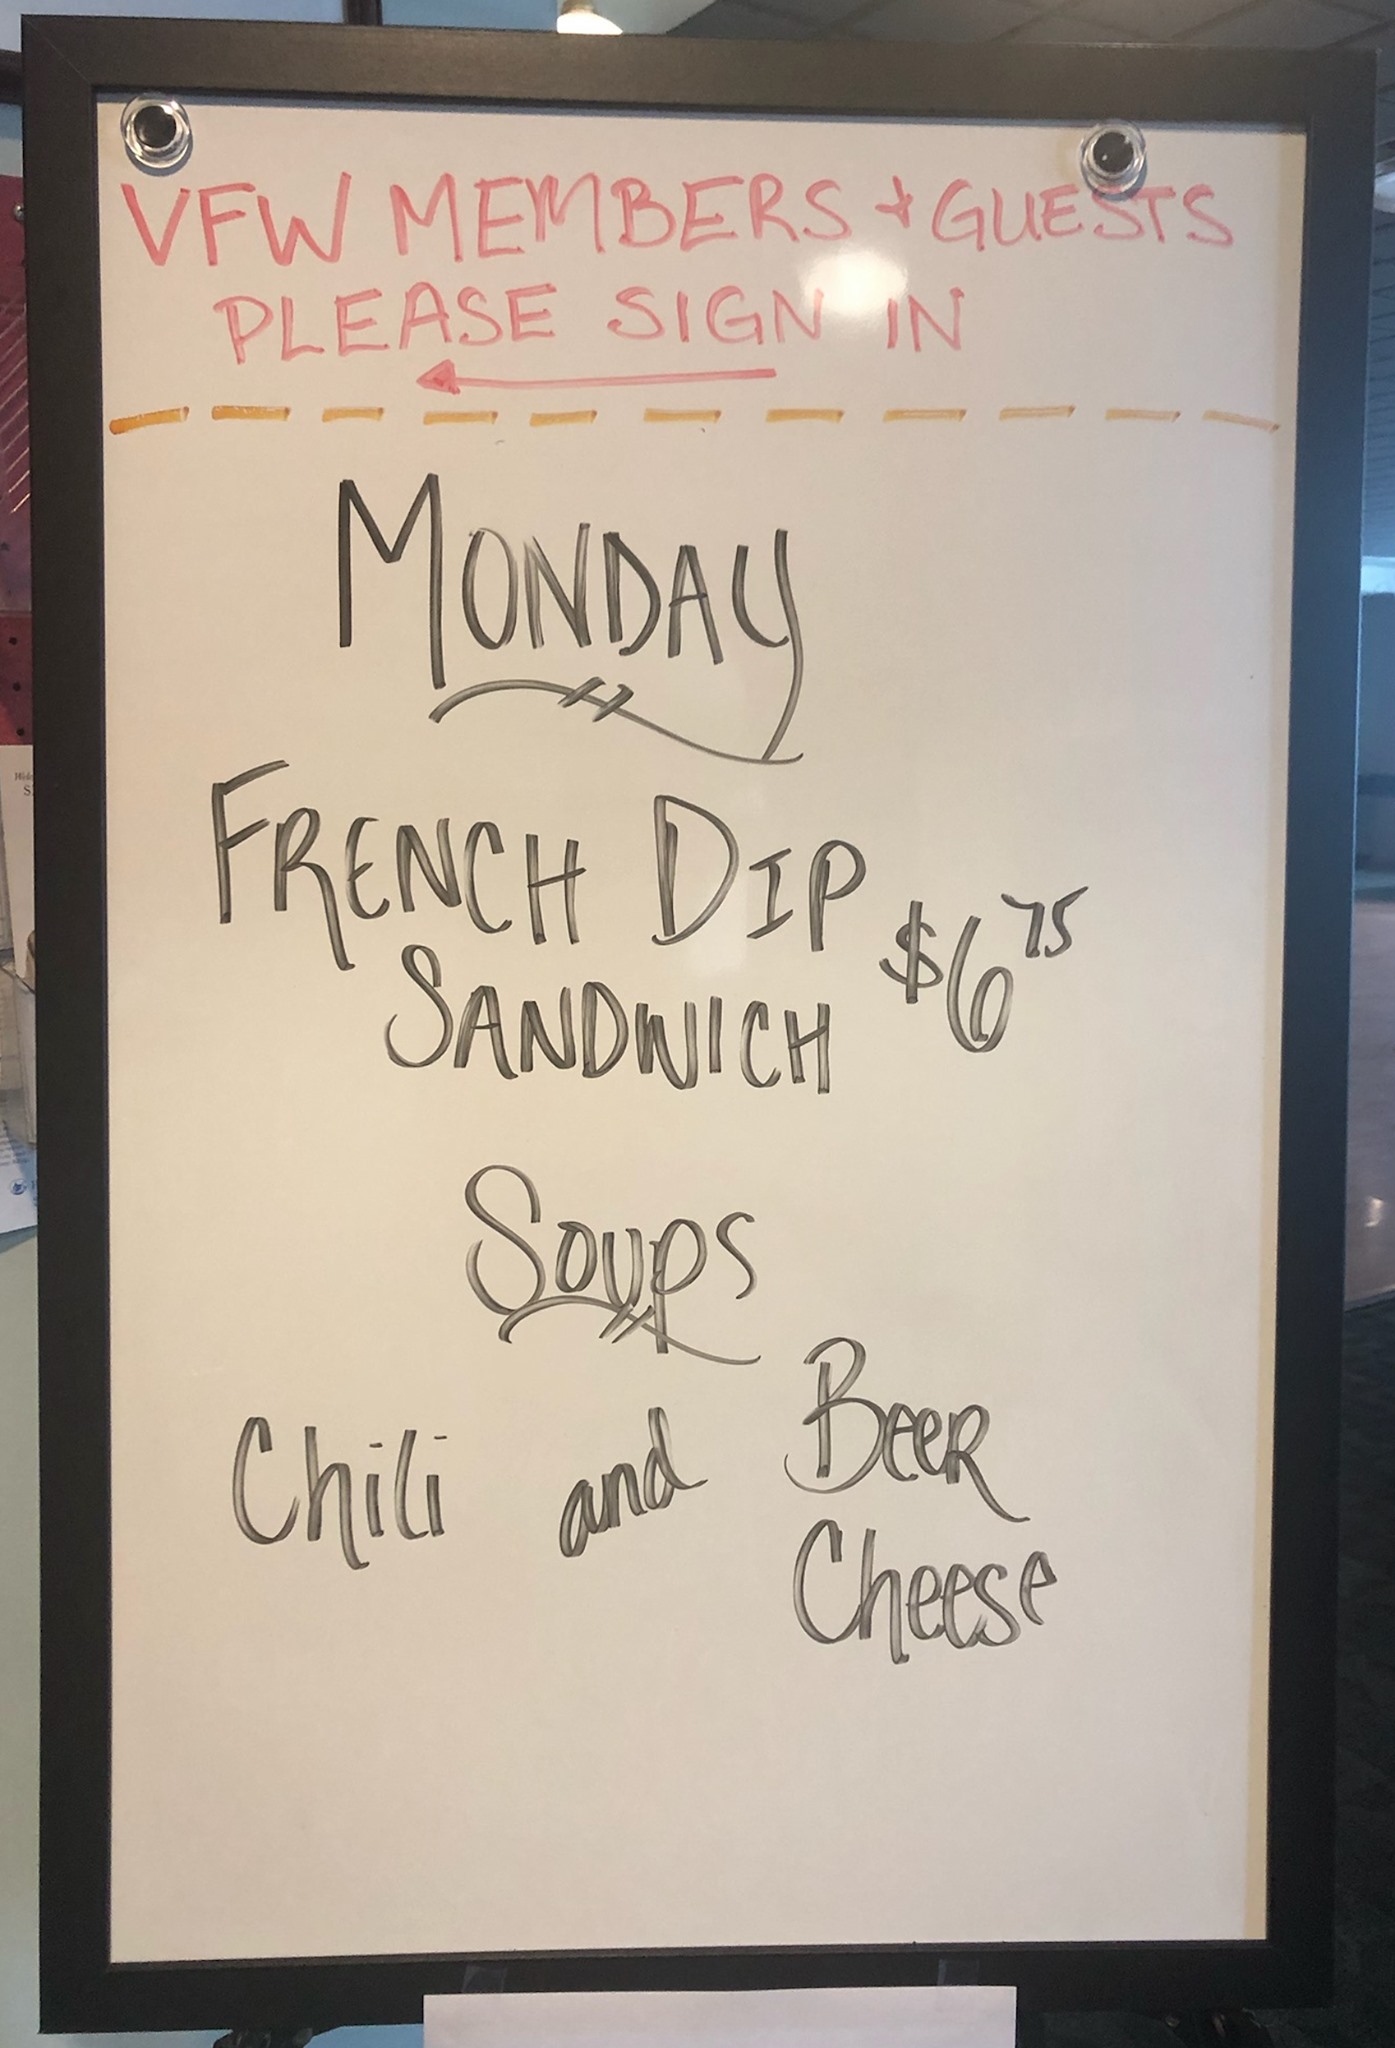 VFW MEMBERS + GUESTS
PLEASE SIGN IN
MONDAY
FRENCH DIP
SANDWICH $6 75
SOUPS
Chili and BEER
Cheese